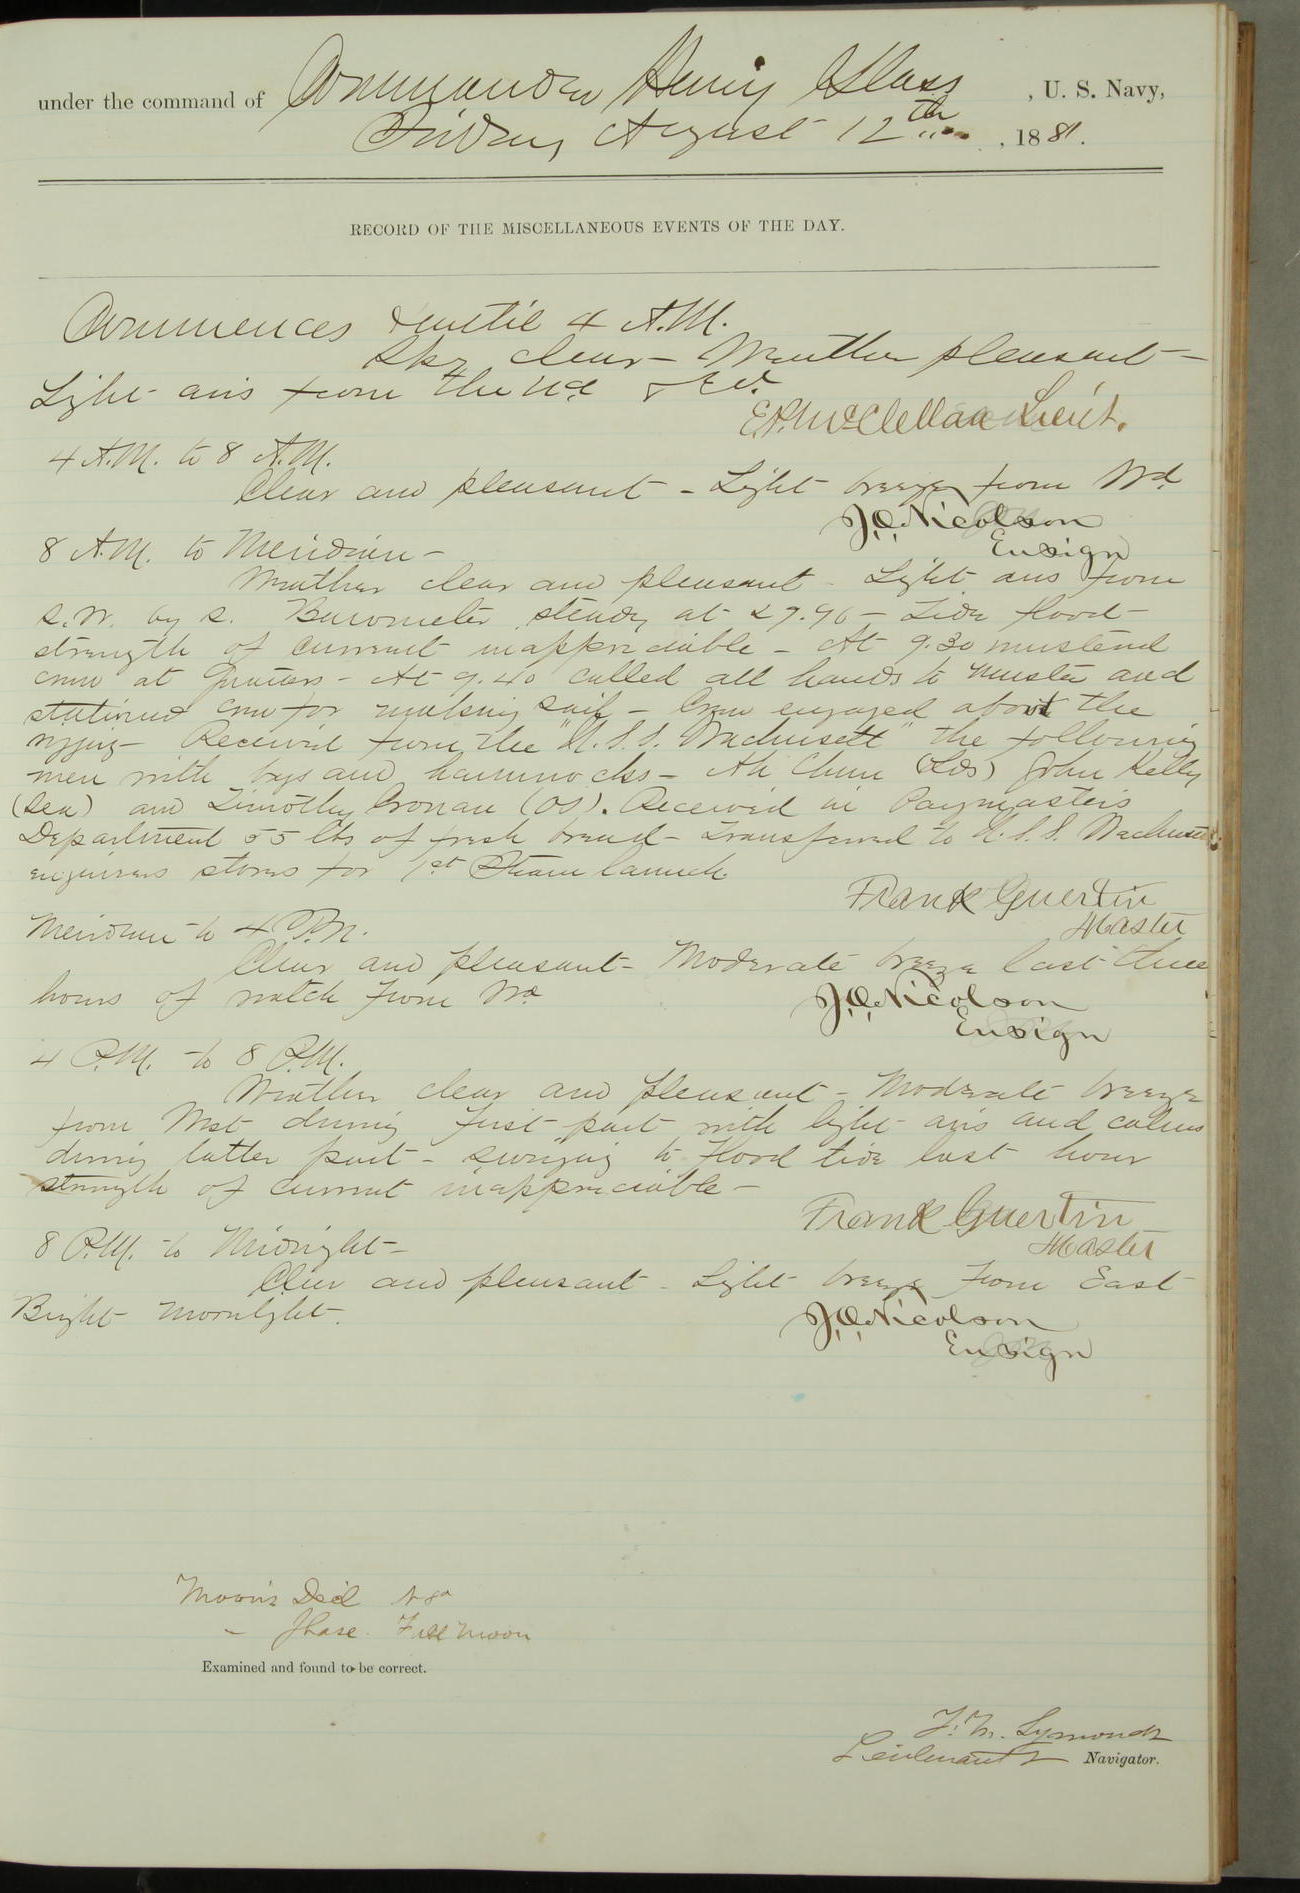 under the command of Commander Henry Glass, U. S. Navy,
Friday August 12th, 1881.
RECORD OF THE MISCELLANEOUS EVENTS OF THE DAY.
Commences & until 4 A.M.
Sky clear - Weather pleasant -
Light airs from the Nd & Ed.
E.P. McClellan Lieut.
4 A.M. to 8 A.M.
Clear and pleasant - Light breeze from Wd.
J.O. Nicolson
Ensign
8 A.M. to Meridian -
Weather clear and pleasant - Light airs from
S.W. by S. Barometer steady at 29.96 - Tide flood
strength of current inappreciable - At 9.30 mustered
crew at Quarters - At 9.40 called all hands to muster and
stationed crew for making sail - Crew engaged about the
rigging - Received from the "U.S.S. Wachusett" the following
men with bags and hammocks - Ah Chum (Lds) John Kelly
(Sea) and Timothy Cronan (OS). Received in Paymasters
Department 55 lbs of fresh bread - Transferred to U.S.S. Wachusett
engineers stores for 1st Steam launch.
Frank Guertin
Master
Meridian to 4 P.M.
Clear and pleasant - Moderate breeze last three
hours of watch from Wd
J.O. Nicolson
Ensign
4 P.M. to 8 P.M.
Weather clear and pleasant - Moderate breeze
from West during first part with light airs and calms
during latter part - swinging to flood tide last hour
strength of current inappreciable -
Frank Guertin
Master
8 P.M. to Midnight -
Clear and pleasant - Light breeze from East
Bright moonlight.
J.O. Nicolson
Ensign
Moon's Decl
- Phase. Full Moon
Examined and found to be correct.
F. M. Symonds
Lieutenant Navigator.